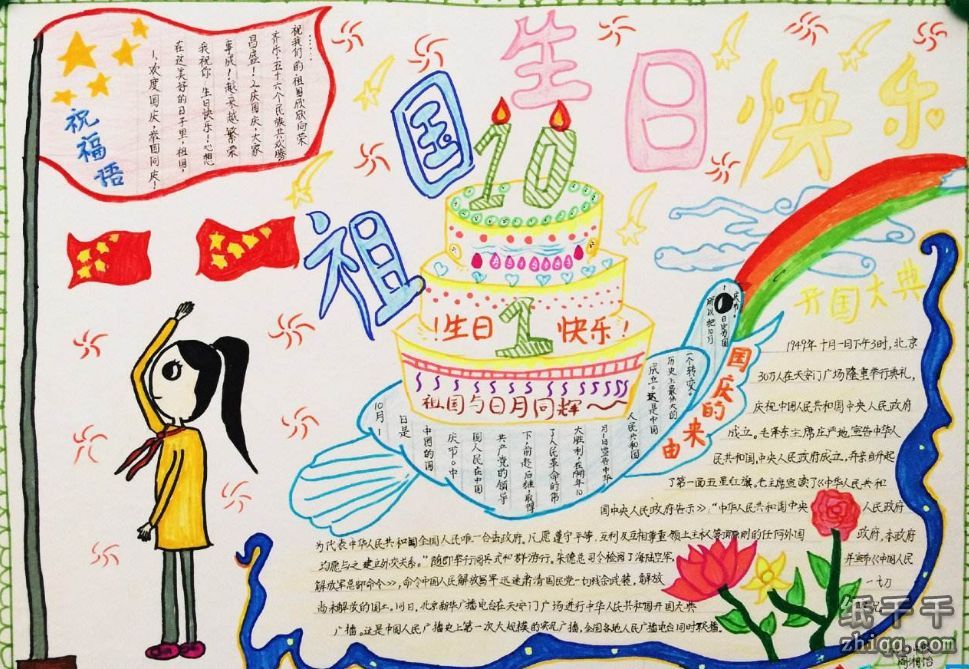 祖国生日快乐
祝福语
1.欢度国庆,普国同庆!
在这美好的日子里,祖国,
我祝你生日快乐!心想
事成!越来越繁荣
昌盛!2.庆国庆,大家
齐乐,五十六个民族共欢腾
祝我们的祖国欣欣向荣
……
10
!生日1快乐!
祖国与日月同辉~
国庆的来由
10月1
日是
中国的国
庆节。中
国人民在中国
共产党的领导
下,前赴后继,取得
了人民革命的伟
大胜利,在1949年10
月1日宣告中华
人民共和国
成立。这是中国
历史上最伟大的
一个转变。
所以把10月
庆节。
开国大典
1949年十月一日下午3时,北京
30万人在天安门广场隆重举行典礼,
庆祝中国人民共和国中央人民政府
成立。毛泽东主席庄严地宣告中华人
民共和国,中央人民政府成立,并亲自升起
了第一面五星红旗,毛主席宣读了《中华人民共和
国中央人民政府告示》:“中华人民共和国中央人民政府
为代表中华人民共和国全国人民唯一合法政府,凡愿遵守平等,互利及互相尊重领土主权等项原则的任何外国政府,本政府
均愿与之建立外交关系。”随即举行阅兵式和群众游行。朱德总司令检阅了海陆空军,并宣布《中国人民
解放军总部命令》,命令中国人民解放军迅速肃清国民党一切残余武装,解放一切
尚未解放的国土。同日,北京新华广播电台在天安门广场进行中华人民共和国开国大典
广播。这是中国人民广播史上第一次大规模的实况广播,全国各地人民广播电台同时联播。
纸千千
zhiqq.com